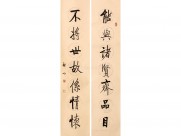 能與諸賢齊品目
不將世故係情懷